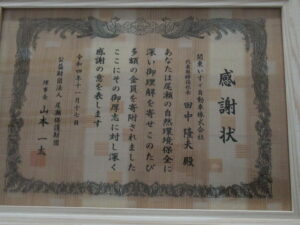 感謝状
関東いすゞ自動車株式会社
代表取締役社長 田中 隆夫 殿
あなたは尾瀬の自然環境保全に
深い御理解を寄せこのたび
多額の金員を寄附されました
ここにその御厚志に対し深く
感謝の意を表します
令和四年十一月十七日
公益財団法人 尾瀬保護財団
理事長 山本 一太